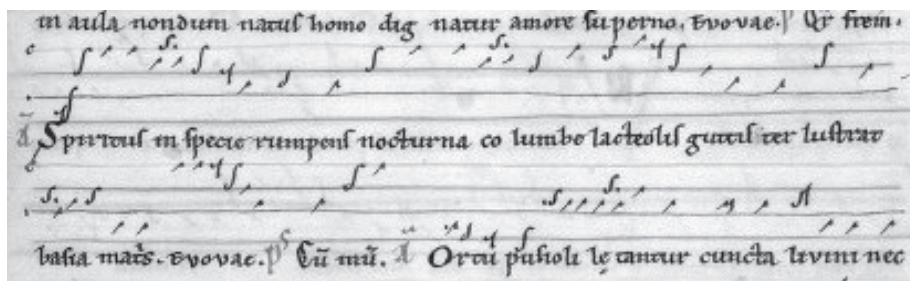 in aula nondum natus homo dig natur amore superno. Evovae. p̄ Qr̄ frem.
Ā Spiritus in specie rumpens nocturna co lumbe lacteolis guttis ter lustrat
basia mat̄s. Evovae. ps Cū mū. Ā Ortū pusioli lę tantur cuncta livini nec